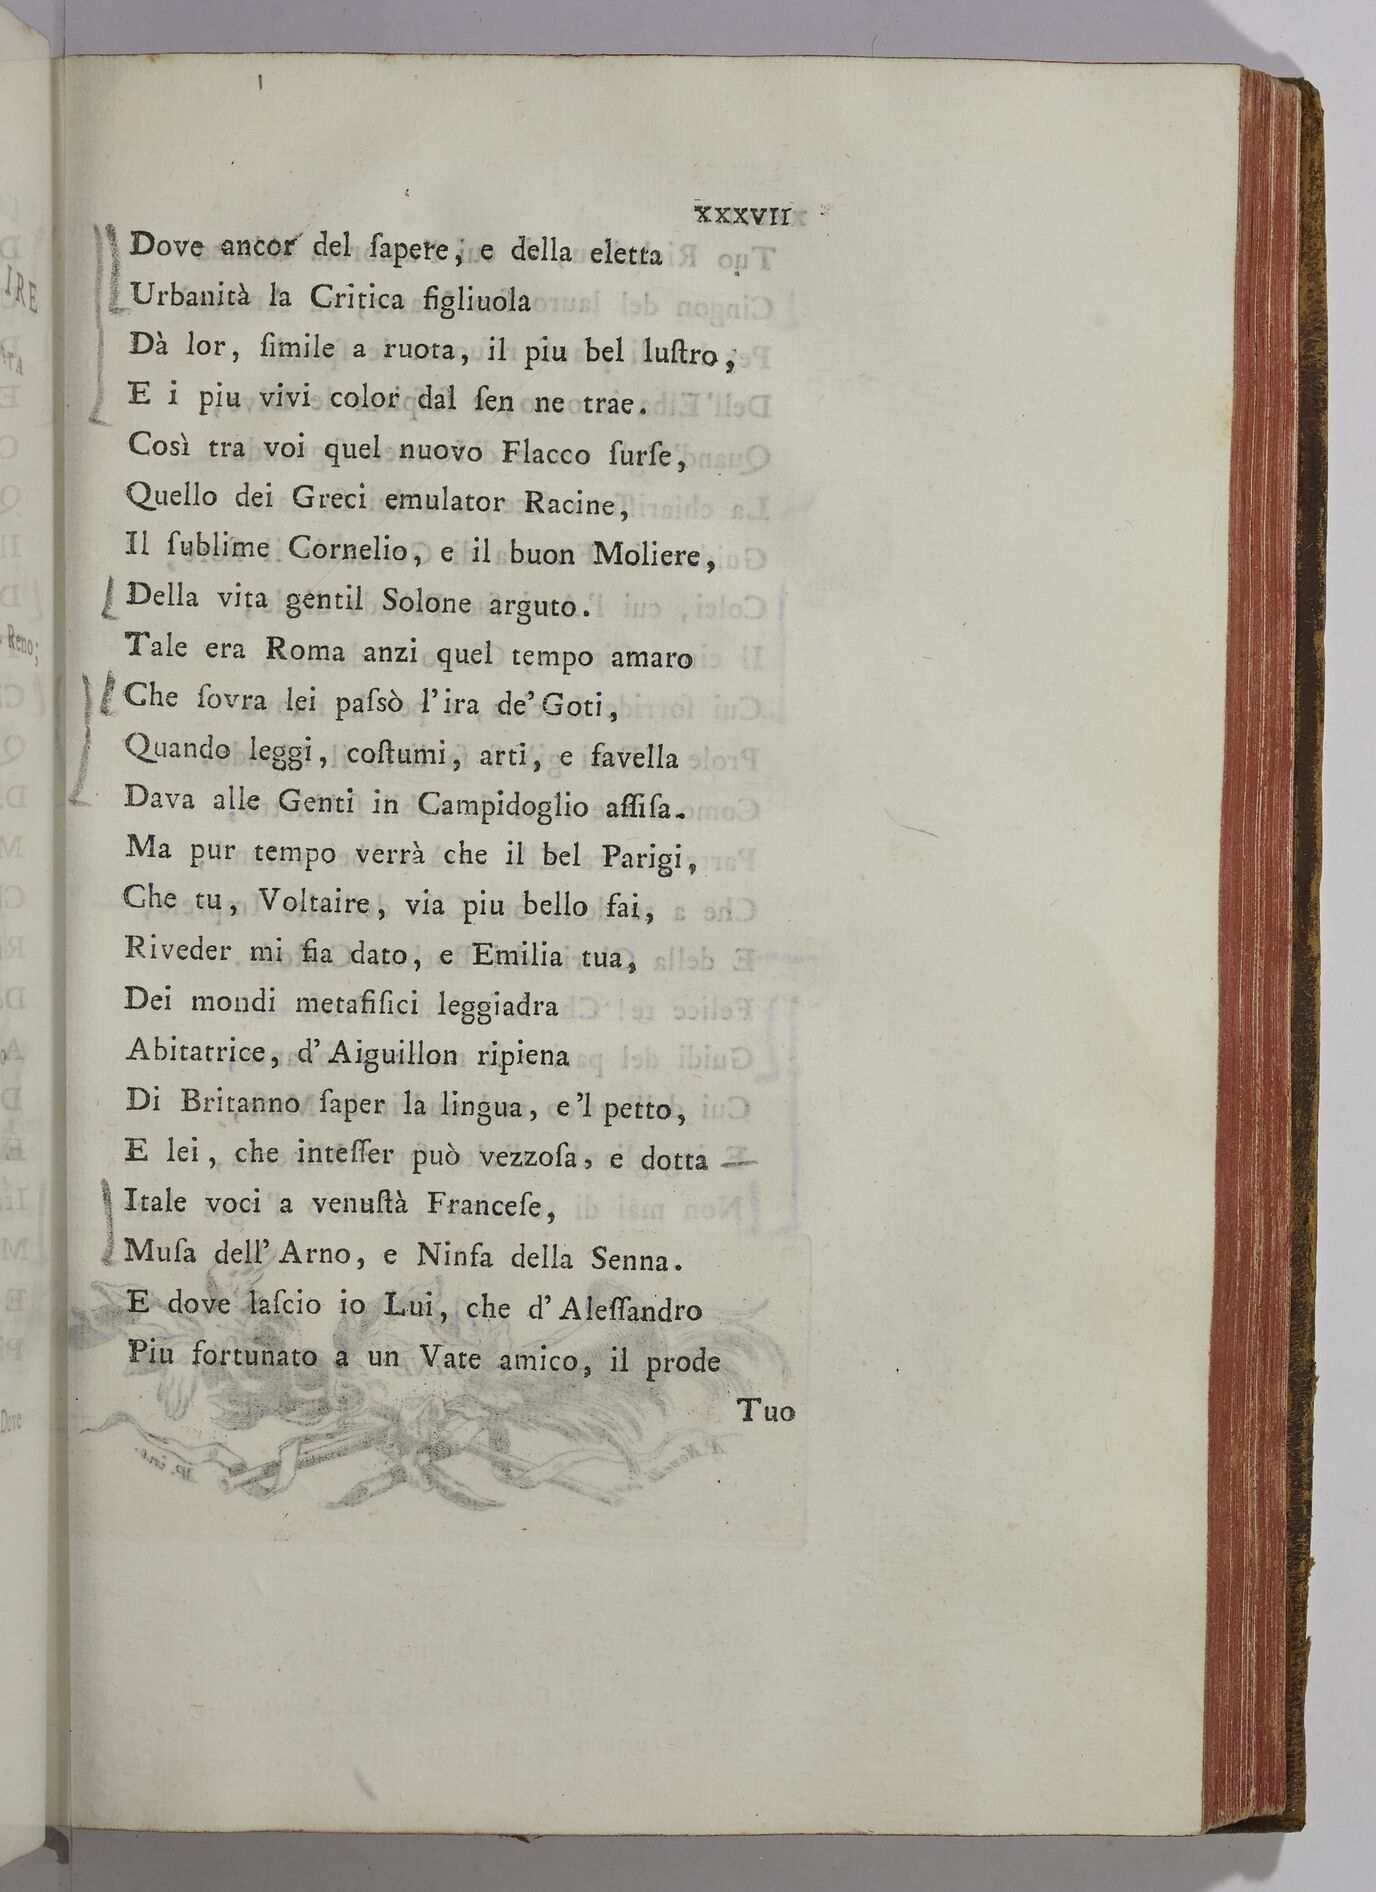 XXXVII
Dove ancor del ſapere, e della eletta
Urbanità la Critica figliuola
Dà lor, ſimile a ruota, il piu bel luſtro,
E i piu vivi color dal ſen ne trae.
Così tra voi quel nuovo Flacco ſurſe,
Quello dei Greci emulator Racine,
Il ſublime Cornelio, e il buon Moliere,
Della vita gentil Solone arguto.
Tale era Roma anzi quel tempo amaro
Che ſovra lei paſsò l'ira de' Goti,
Quando leggi, coſtumi, arti, e favella
Dava alle Genti in Campidoglio aſſiſa.
Ma pur tempo verrà che il bel Parigi,
Che tu, Voltaire, via piu bello fai,
Riveder mi fia dato, e Emilia tua,
Dei mondi metafiſici leggiadra
Abitatrice, d'Aiguillon ripiena
Di Britanno ſaper la lingua, e 'l petto,
E lei, che inteſſer può vezzoſa, e dotta
Itale voci a venuſtà Franceſe,
Muſa dell' Arno, e Ninfa della Senna.
E dove laſcio io Lui, che d' Aleſſandro
Piu fortunato a un Vate amico, il prode
Tuo